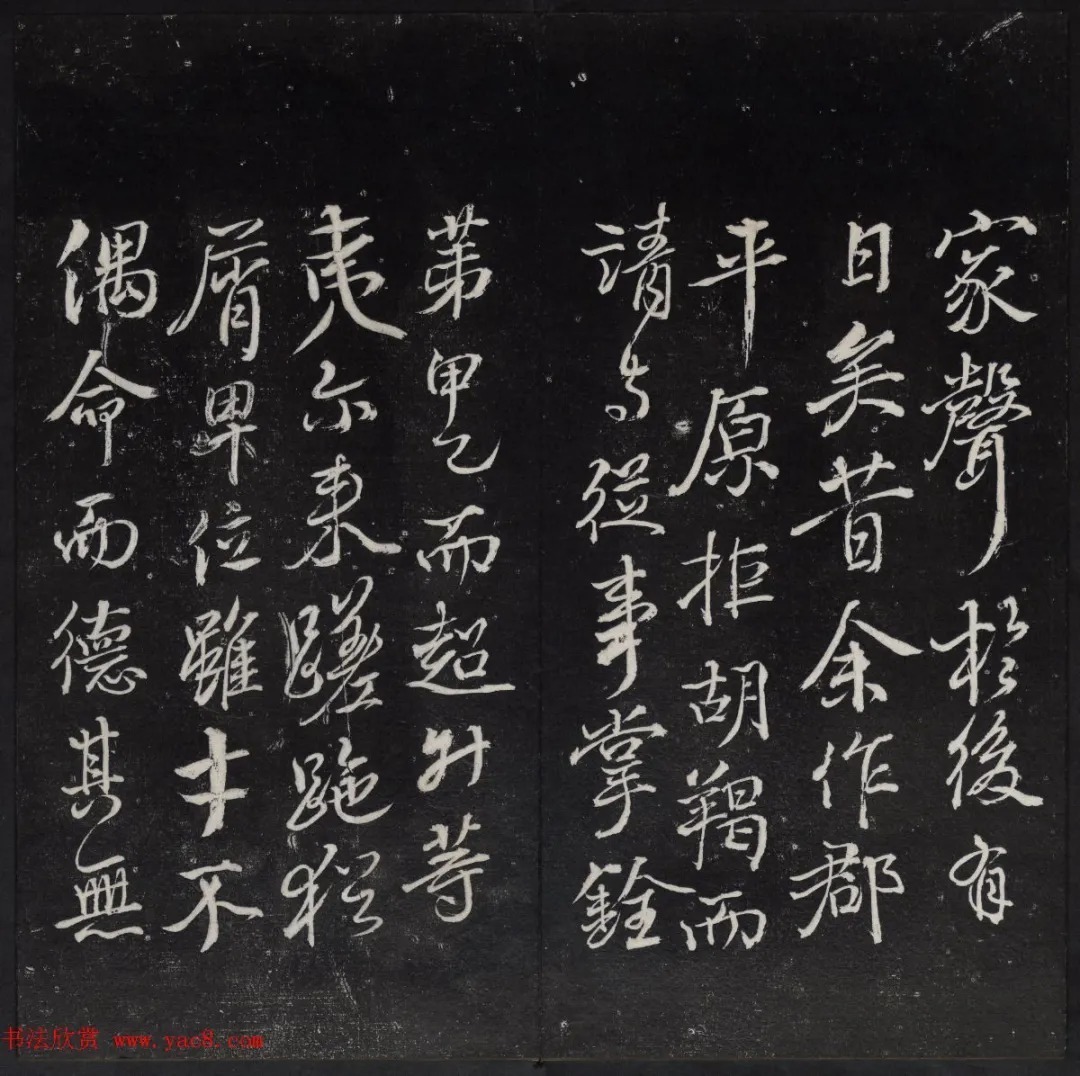 家聲於後有
日矣昔余作郡
平原拒胡羯而
請与從事掌銓
第甲乙而超升等
夷尔來蹉跎猶
屑卑位雖才不
偶命而德其無
书法欣赏 www.yac8.com